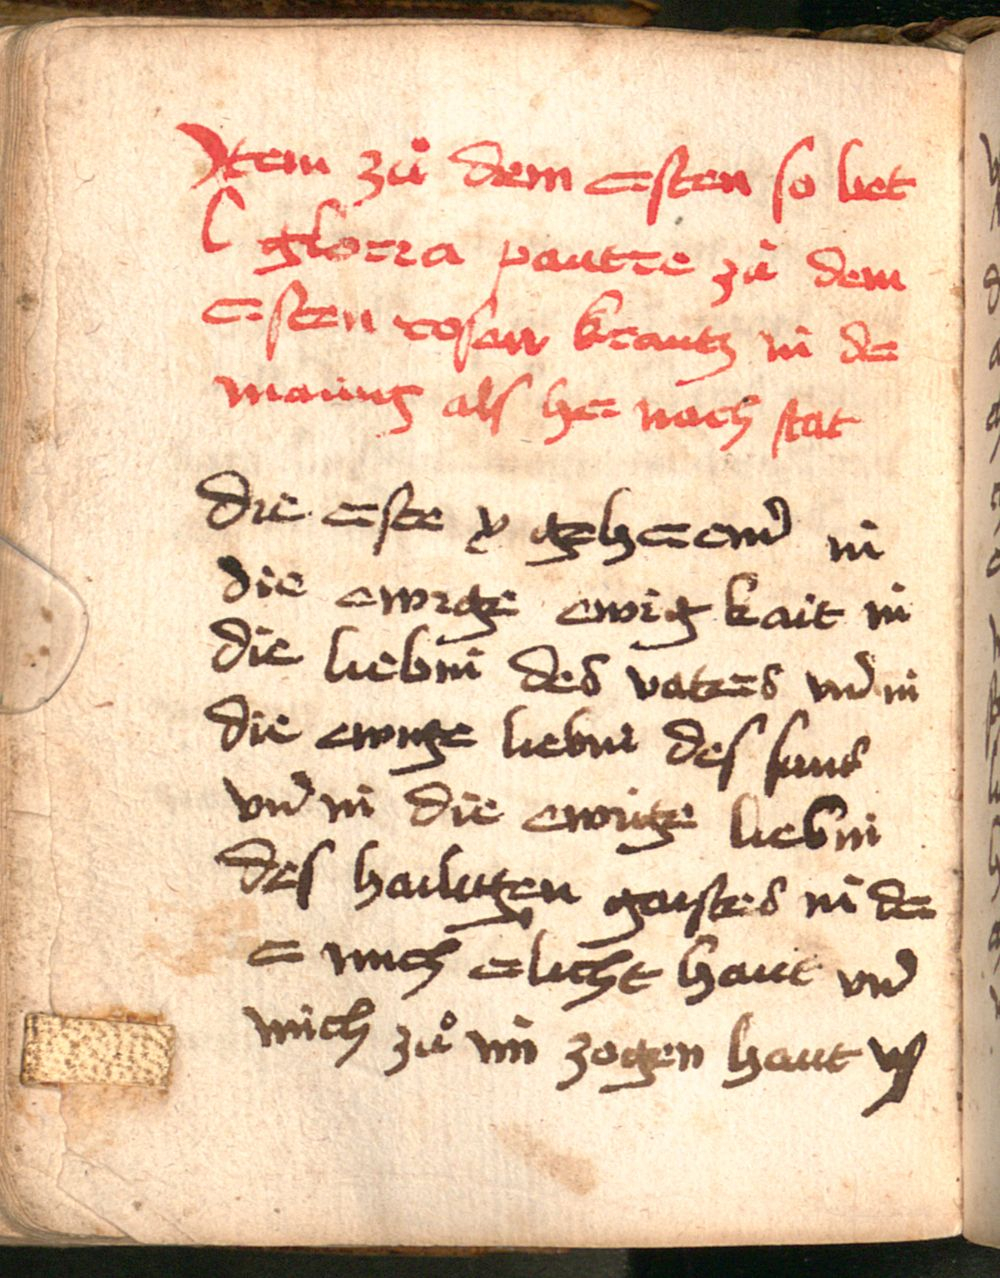 Jtem zuͦ dem ersten so bet
l glorra pautre zuͦ dem
ersten rosen krantz in der
mainug als her nach stat
die erste x geherend in
die ewige ewig kait in
die liebin des vaters vnd in
die ewige liebin des suns
vnd in die ewige liebin
des hailigen gaistes in der
er mich erlicht haut vnd
mich zuͦ im zogen haut